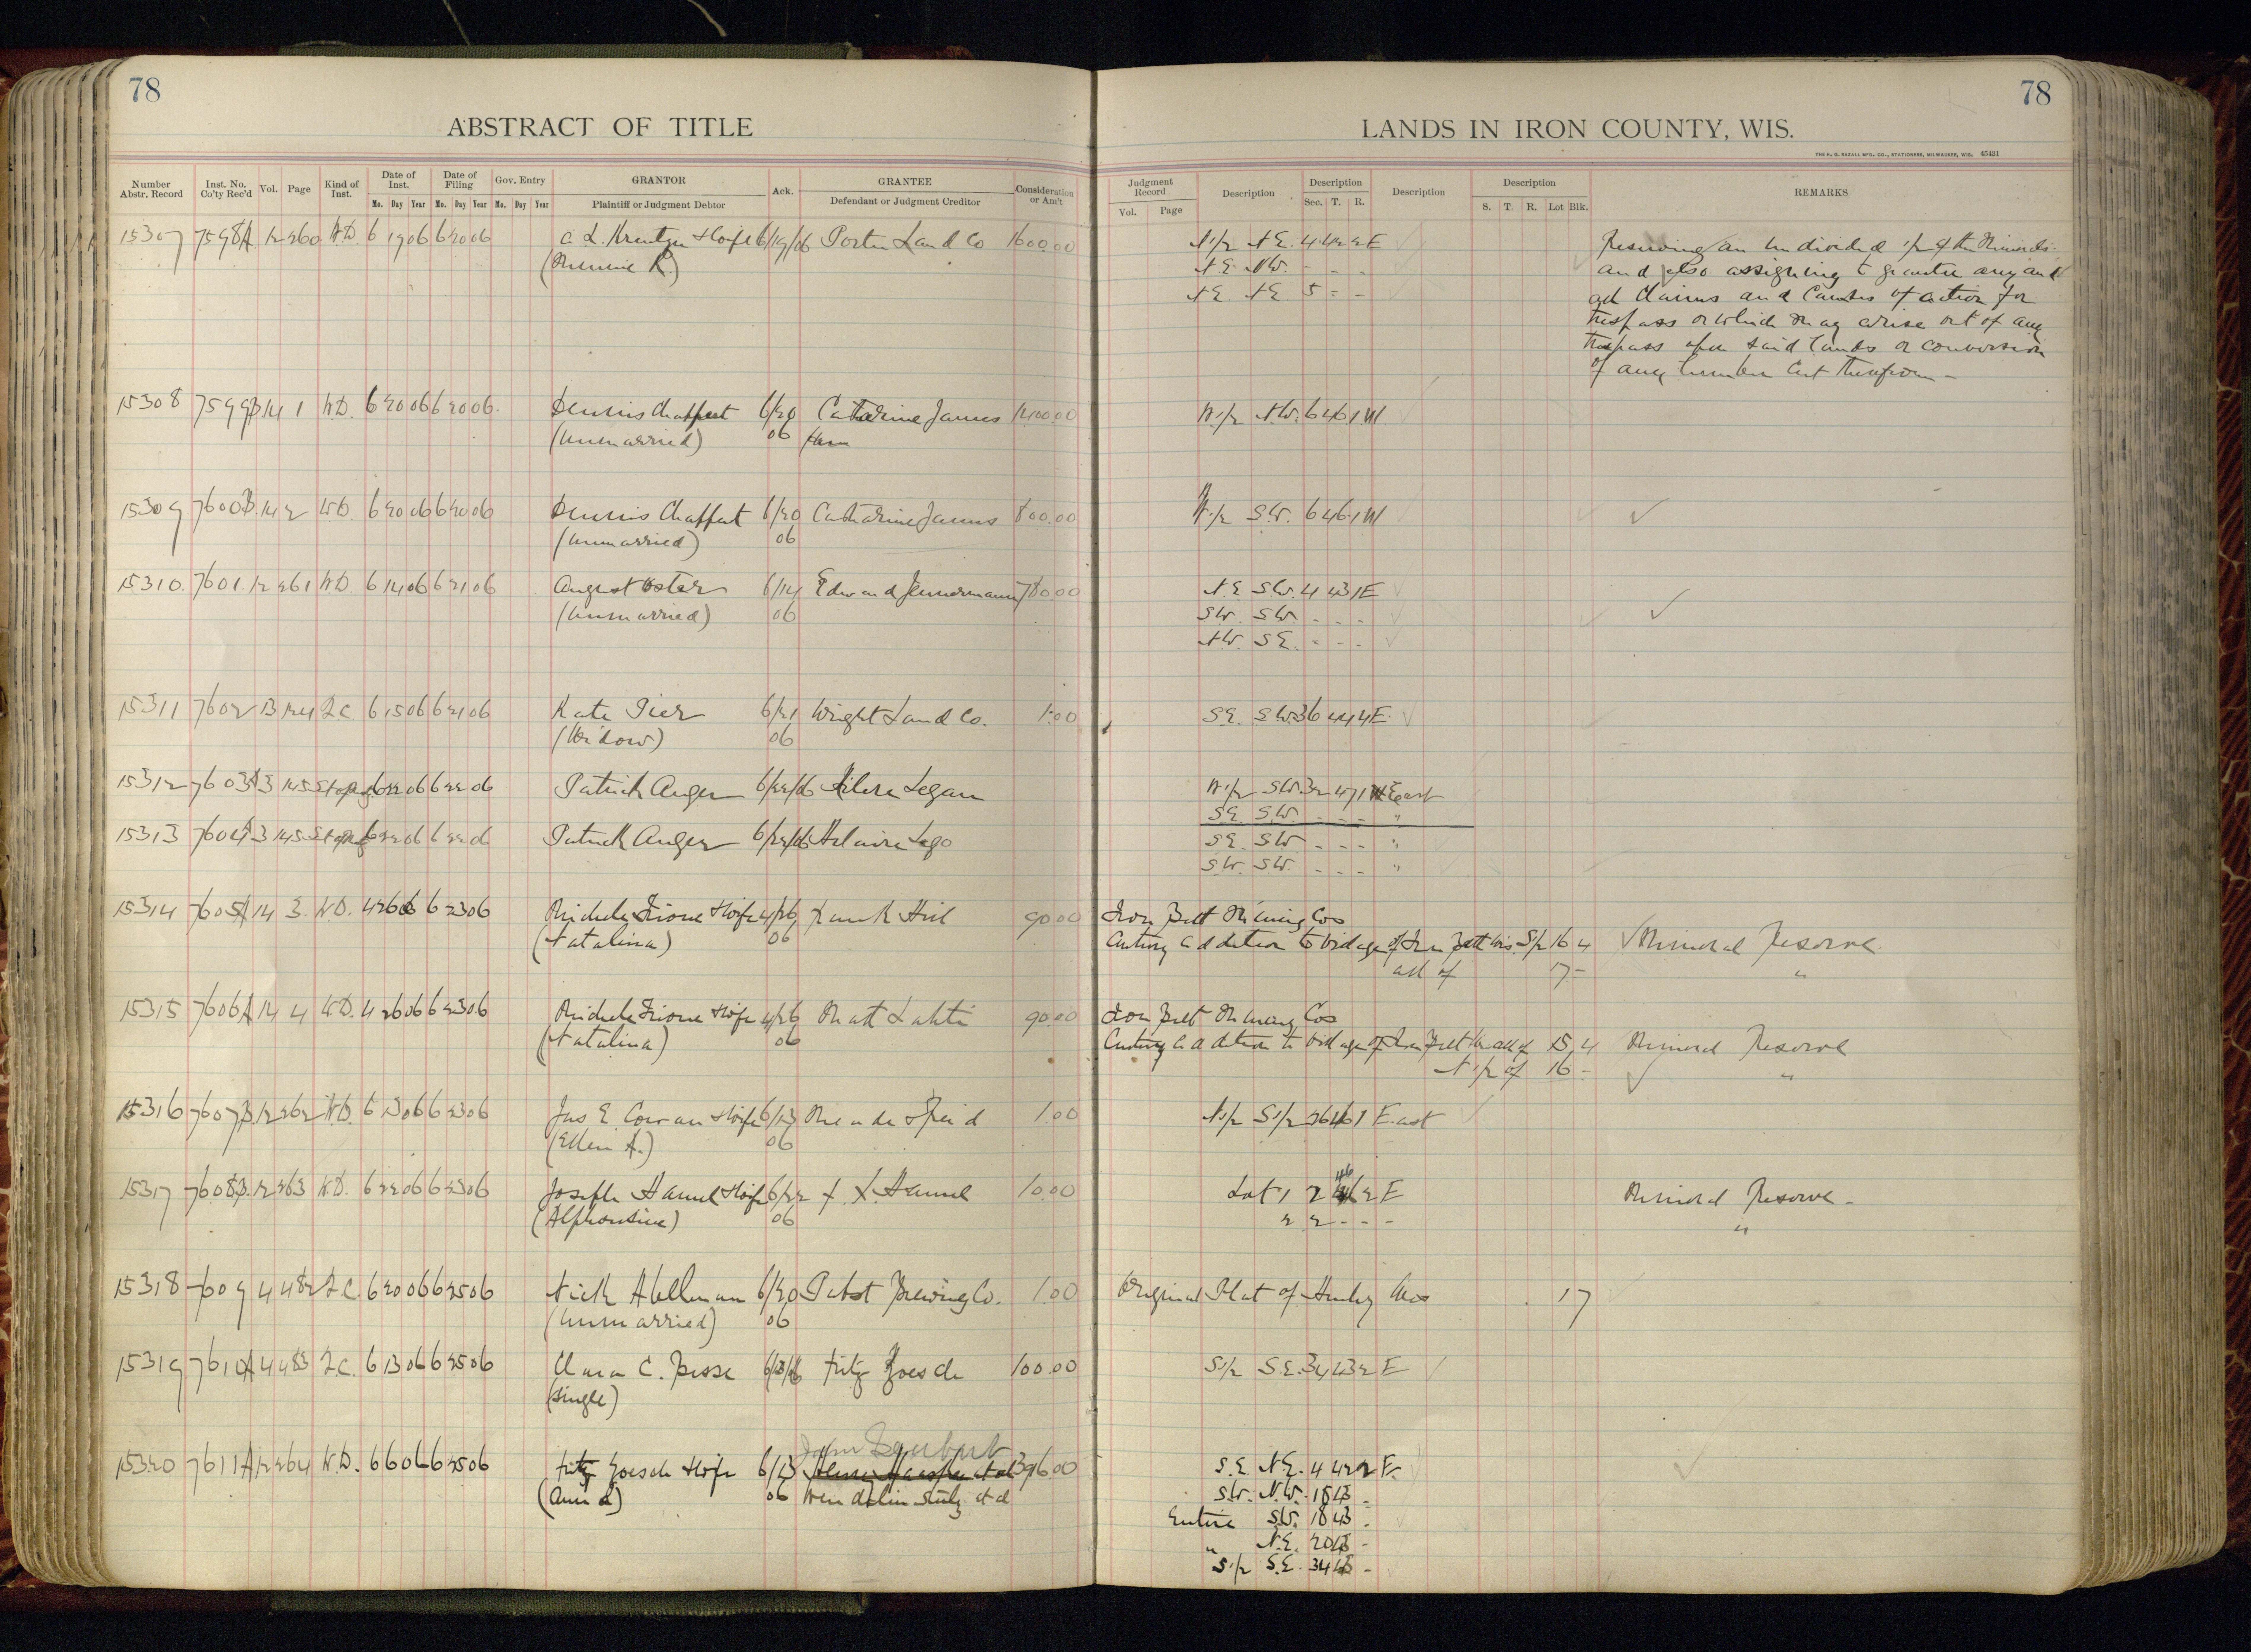 78
ABSTRACT OF TITLE
Number Abstr. Record Inst. No. Co'ty Rec'd Vol. Page Kind of Inst. Date of Inst. Mo. Day Year Date of Filing Mo. Day Year Gov. Entry Mo. Day Year GRANTOR Plaintiff or Judgment Debtor Ack. GRANTEE Defendant or Judgment Creditor Consideration or Am't
15307 7598A 12 260 W.D. 6 19 06 6 20 06 & Wife 6/19/06 Porter Land Co 1600.00
15308 14 1 W.D. 6 20 06 6 20 06 Dennis Chaffert 6/20 Catharine James
(Unmarried) 06
15309 7600B 14 2 W.D. 6 20 06 6 20 06 Dennis Chaffert 6/20 Catharine James 800.00
(Unmarried) 06
15310 7601 12 261 W.D. 6 14 06 6 21 06 August Oster 6/14 780.00
(Unmarried) 06
15311 7602 13 124 Q.C. 6 15 06 6 21 06 Kate Pier 6/21 Wright Land Co. 1.00
(Widow) 06
15312 7603A 3 145 6 22 06 6 22 06 Patrick Auger 6/22/06
15313 7604A 3 145 6 22 06 6 22 06 Patrick Auger 6/22/06
15314 7605A 14 3 W.D. 4 26 06 6 23 06 & Wife 4/26 90.00
(Natalina) 06
15315 7606A 14 4 W.D. 4 26 06 6 23 06 & Wife 4/26 Matt Lahti 90.00
(Natalina) 06
15316 7607B 12 262 W.D. 6 13 06 6 23 06 Jas E Cowan & Wife 6/13 1.00
(Ellen A.) 06
15317 7608B 12 263 W.D. 6 22 06 6 23 06 Joseph Hamel & Wife 6/22 F. X. Hamel 10.00
(Alphonsine) 06
15318 7609 4 482 Q.C. 6 20 06 6 25 06 Nick Abelman 6/20 Pabst Brewing Co. 1.00
(Unmarried) 06
15319 7610A 4 483 Q.C. 6 13 06 6 25 06 Clara C. 6/13/06 Fritz Goesch 100.00
(Single)
15320 7611A 12 264 W.D. 6 6 06 6 25 06 Fritz Goesch & Wife 6/13 John
(Anna) 06 et al
78
LANDS IN IRON COUNTY, WIS.
THE H. G. RAZALL MFG. CO., STATIONERS, MILWAUKEE, WIS. 45421
Judgment Record Vol. Page Description Description Sec. T. R. Description Description S. T. R. Lot Blk. REMARKS
N1/2 N.E. 4 42 2 E Reserving an undivided 1/2 of the Minerals
N.E. N.W. - - - and also assigning to grantee any and
N.E. N.E. 5 - - all claims and causes of action for
trespass or which may arise out of any
trespass upon said lands or conversion
of any timber cut therefrom -
W.1/2 N.W. 6 46 1 W
W.1/2 S.W. 6 46 1 W
N.E. S.W. 4 43 1 E
S.W. S.W. - - -
N.W. S.E. - - -
S.E. S.W. 36 44 4 E.
W1/2 S.W. 32 47 1 East
S.E. S.W. - - - "
S.E. S.W. - - - "
S.W. S.W. - - - "
Iron Belt Mining Cos
addition to Village of Iron Belt Wis. S1/2 16 4 Mineral Reserve
all of 17 - "
Iron Belt Mining Cos
addition to Village of Iron Belt all of 15 4 Mineral Reserve
N 1/2 of 16 - "
N1/2 S1/2 26 46 1 East
Lot 1 2 46 2 E Mineral Reserve -
2 2 - - - "
Original Plat of Hurley Wis 17
S1/2 S.E. 34 43 2 E
S.E. N.E. 4 42 2 E.
S.W. N.W. 18 43 -
Entire S.W. 18 43 -
" N.E. 20 43 -
S1/2 S.E. 34 43 -